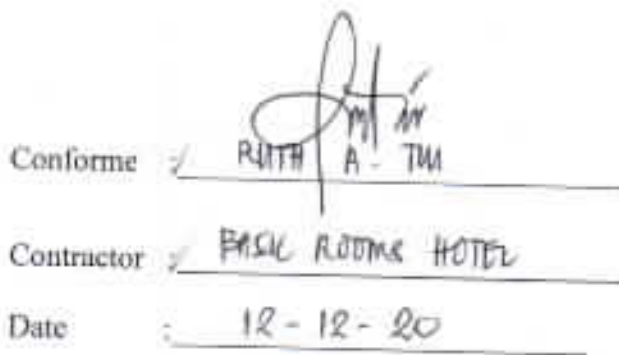 Conforme : RUTH A - TIU
Contractor : BASIC ROOMS HOTEL
Date : 12 - 12 - 20